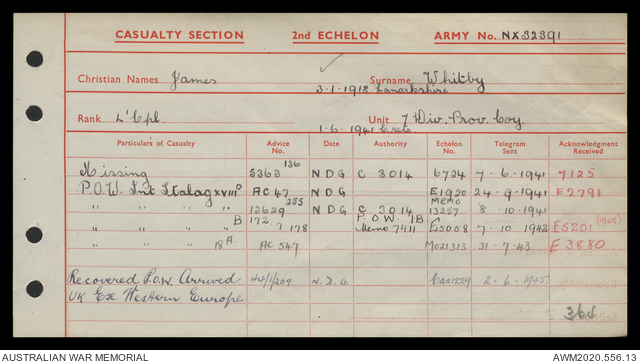 CASUALTY SECTION 2nd ECHELON ARMY No. NX32391
Christian Names James Surname Whitby
3.1.1918 Lanarkshire
Rank L'Cpl. Unit 7 Div. Prov. Coy.
1.6.1941 Crete
Particulars of Casualty Advice No. Date Authority Echelon No. Telegram Sent Acknowledgment Received
Missing 5363 136 NDG C 3014 6724 7.6.1941 7125
P.O.W. Int Stalag XVIII D AC 47 NDG E1920 24.9.1941 E2791
" " " " 13629 255 NDG C 3014 MEMO 13257 8.10.1941
" " " B 172. 7.178 P.O.W. 1B Memo 7411 E5058 7.10.1942 E5201 (1942)
" " " 18A. AC 549 M021313 31.7.43 E3880
Recovered P.O.W. Arrived N.D.G. 2.6.1945
UK Ex Western Europe
364
AUSTRALIAN WAR MEMORIAL AWM2020.556.13